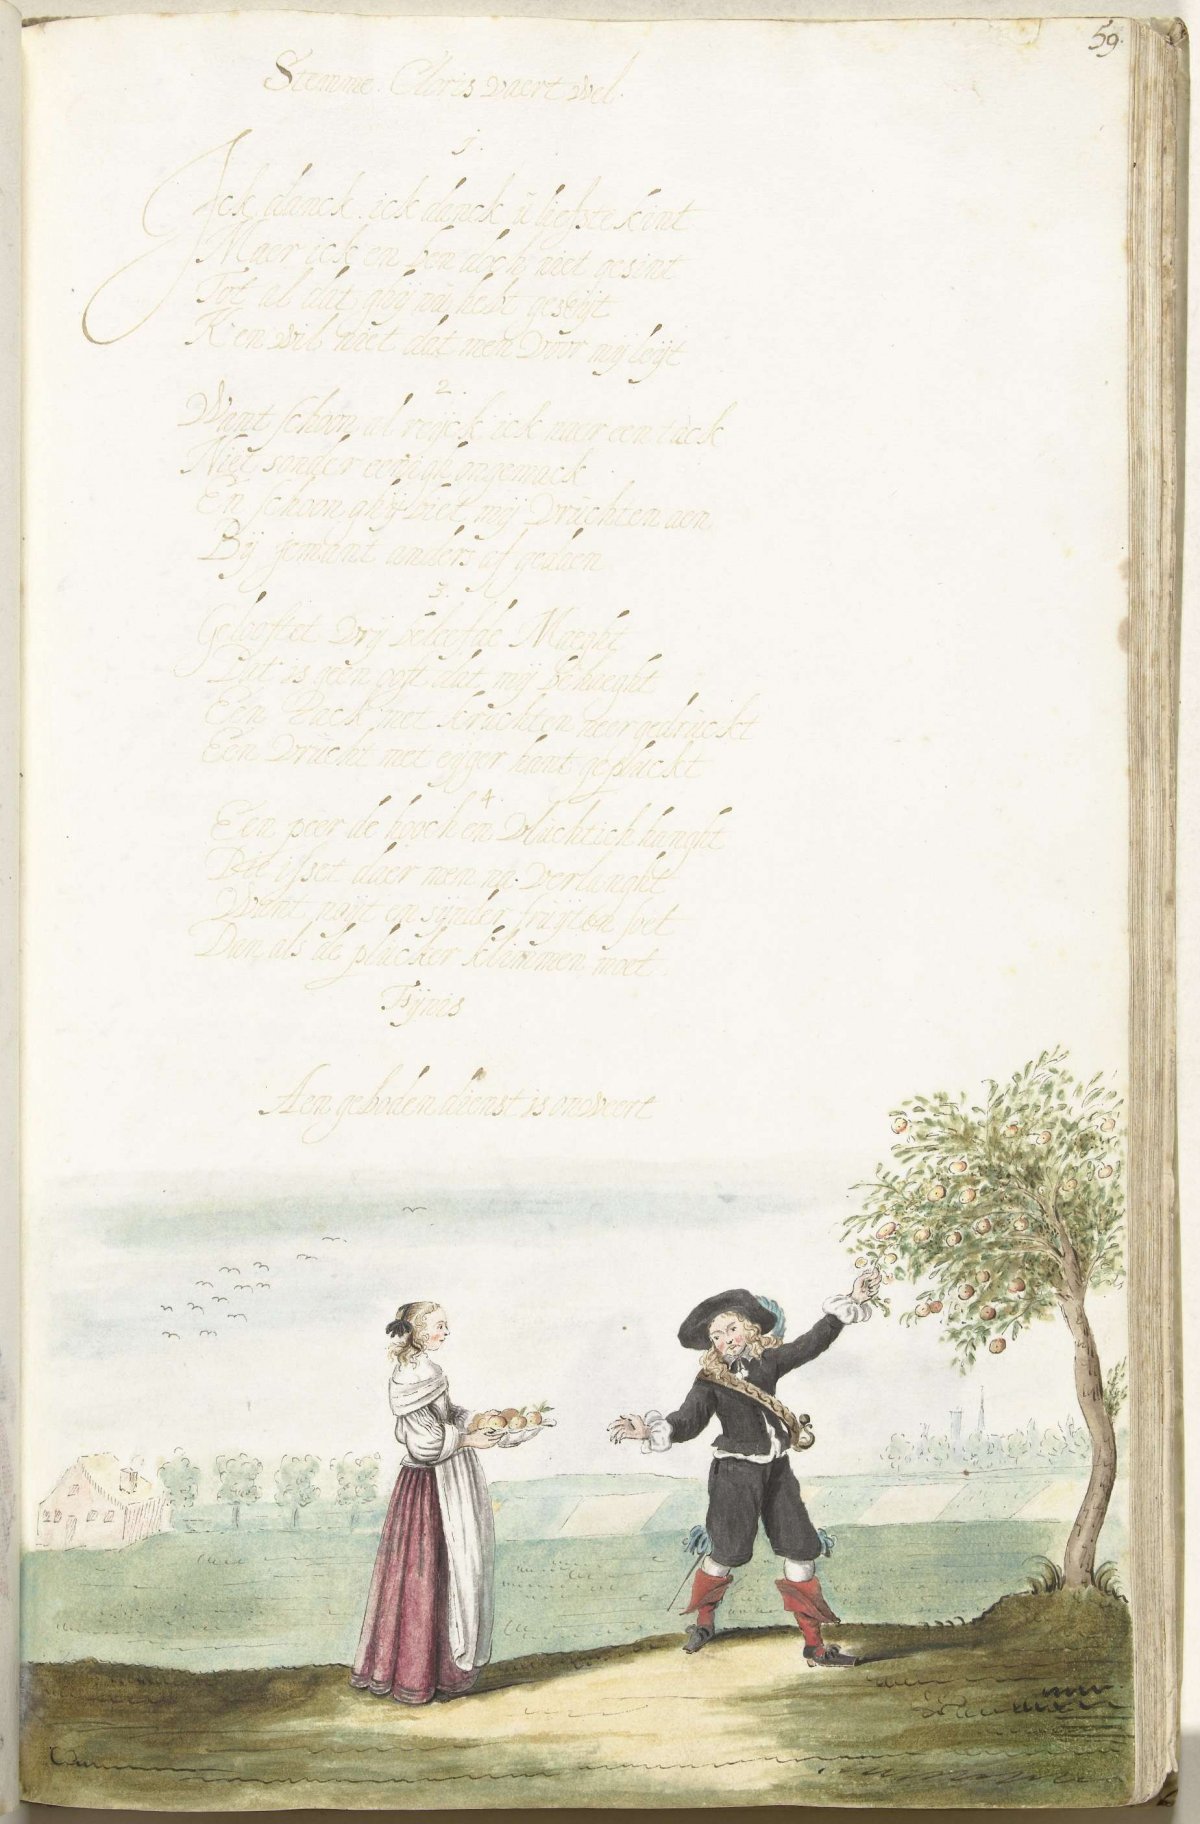 59.
Stemme. Cloris vaert wel.
1.
Ick danck, ick danck u liefste kint
Maer ick en ben doch niet gesint
Tot al dat ghij nu hebt geseijt
K'en wil niet dat men voor mij leijt
2.
Want schoon al reijck ick naer een tack
Niet sonder eenigh ongemack
En schoon ghij biet mij vruchten aen
Bij jemant anders af gedaen
3.
Gelooftet vrij beleefde Maeght
Dat is geen ooft dat mij behaeght
Een tack met krachten neer gedruckt
Een vrucht met eijger hant gepluckt
4.
Een peer de hooch en vluchtich hanght
Die isset daer men na verlanght
Want noijt en sijnder fruijten soet
Dan als de plucker klimmen moet
Fijnis
Aen geboden dienst is onweert